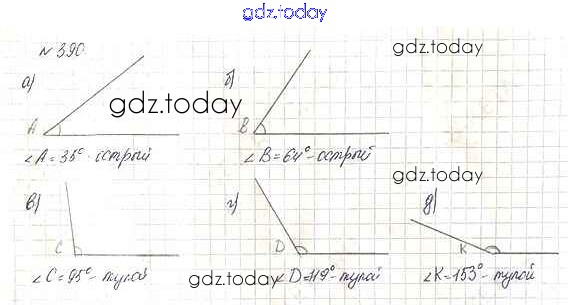 gdz.today
№ 390
gdz.today
а)
б)
gdz.today
A
B
∠A = 35° острый
∠B = 64° - острый
gdz.today
в)
г)
д)
C
D
K
∠C = 95° - тупой
gdz.today
∠D = 119° - тупой
∠K = 153° - тупой